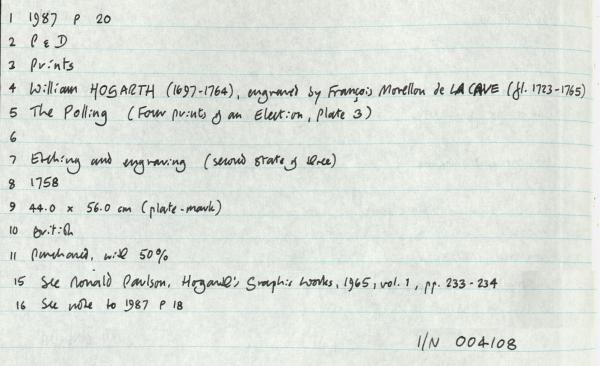 1 1987 P 20
2 P & D
3 Prints
4 William HOGARTH (1697-1764), engraved by François Morellon de LA CAVE (fl. 1723-1765)
5 The Polling (Four prints of an Election, Plate 3)
6
7 Etching and engraving (second state of three)
8 1758
9 44.0 x 56.0 cm (plate-mark)
10 British
11 Purchased, with 50%
15 See Ronald Paulson, Hogarth's Graphic Works, 1965, vol. 1, pp. 233-234
16 See note to 1987 P 18
I/N 004108